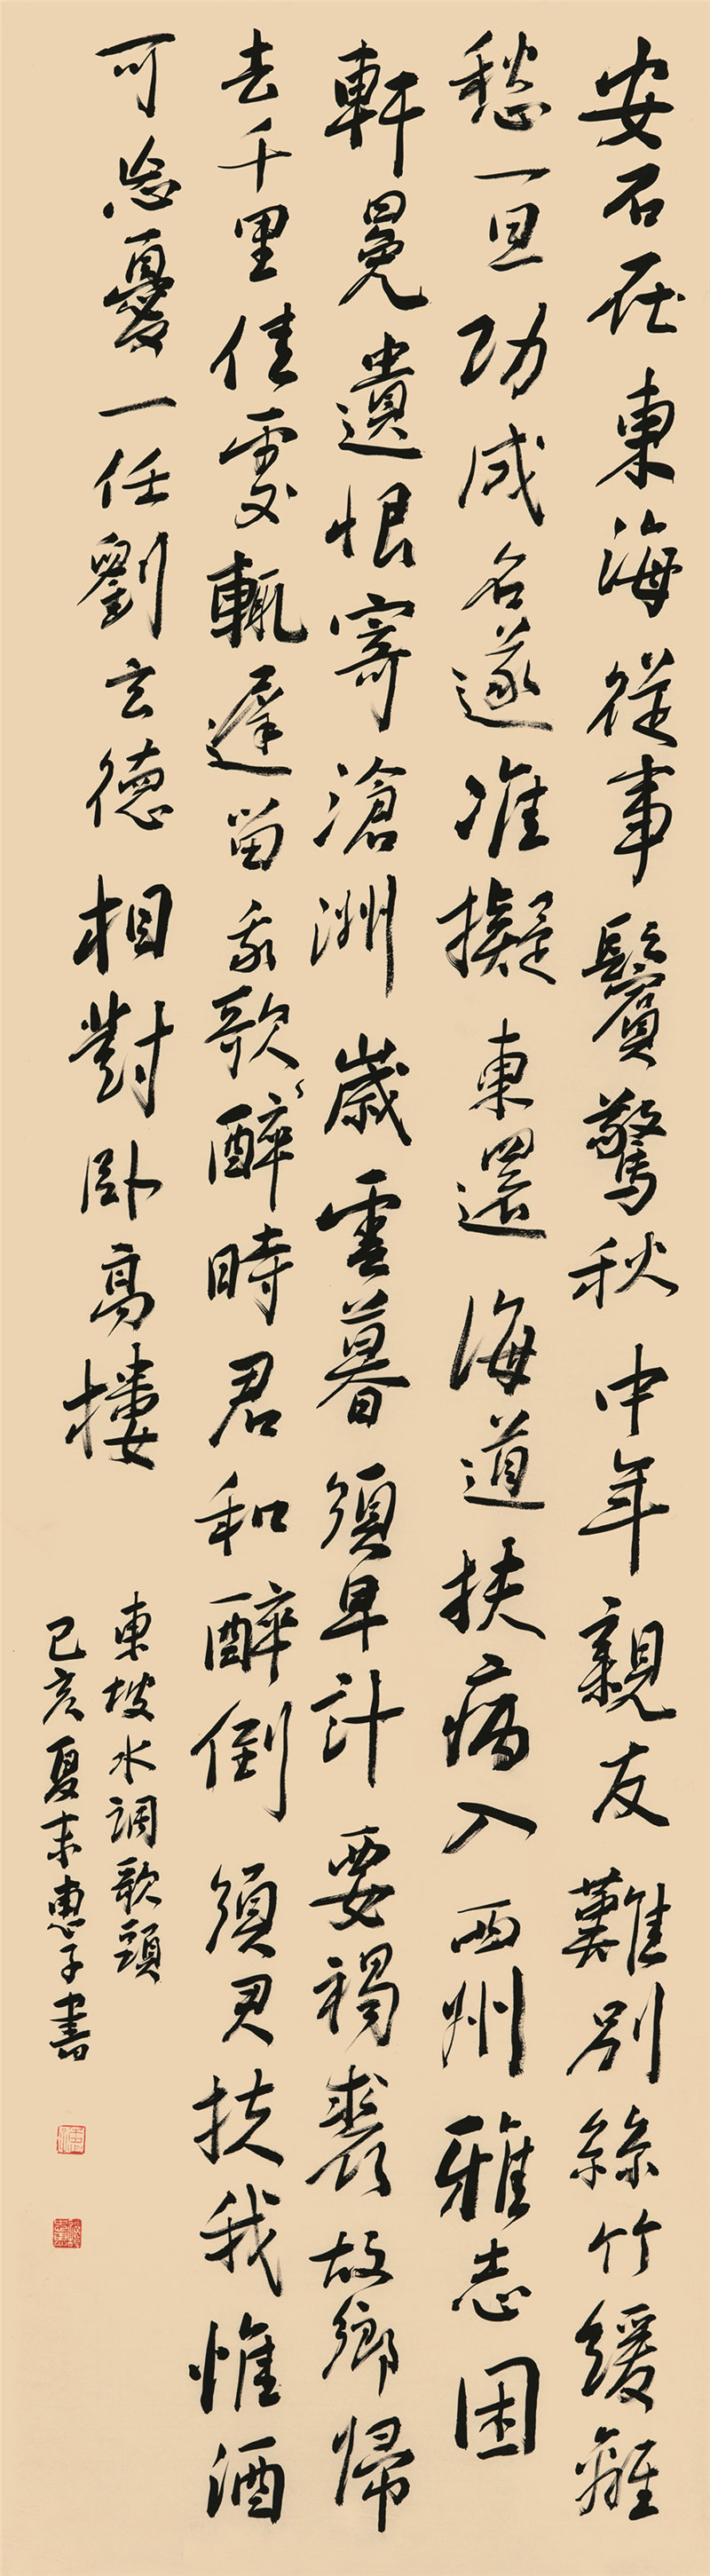 安石在東海從事鬢驚秋中年親友難別絲竹緩離
愁一旦功成名遂准擬東還海道扶病入西州雅志困
軒冕遺恨寄滄洲歲雲暮須早計要褐裘故鄉歸
去千里佳處輒遲留我歌〻醉時君和醉倒須君扶我惟酒
可忘憂一任劉玄德相對臥高樓
東坡水調歌頭
己亥夏末惠子書